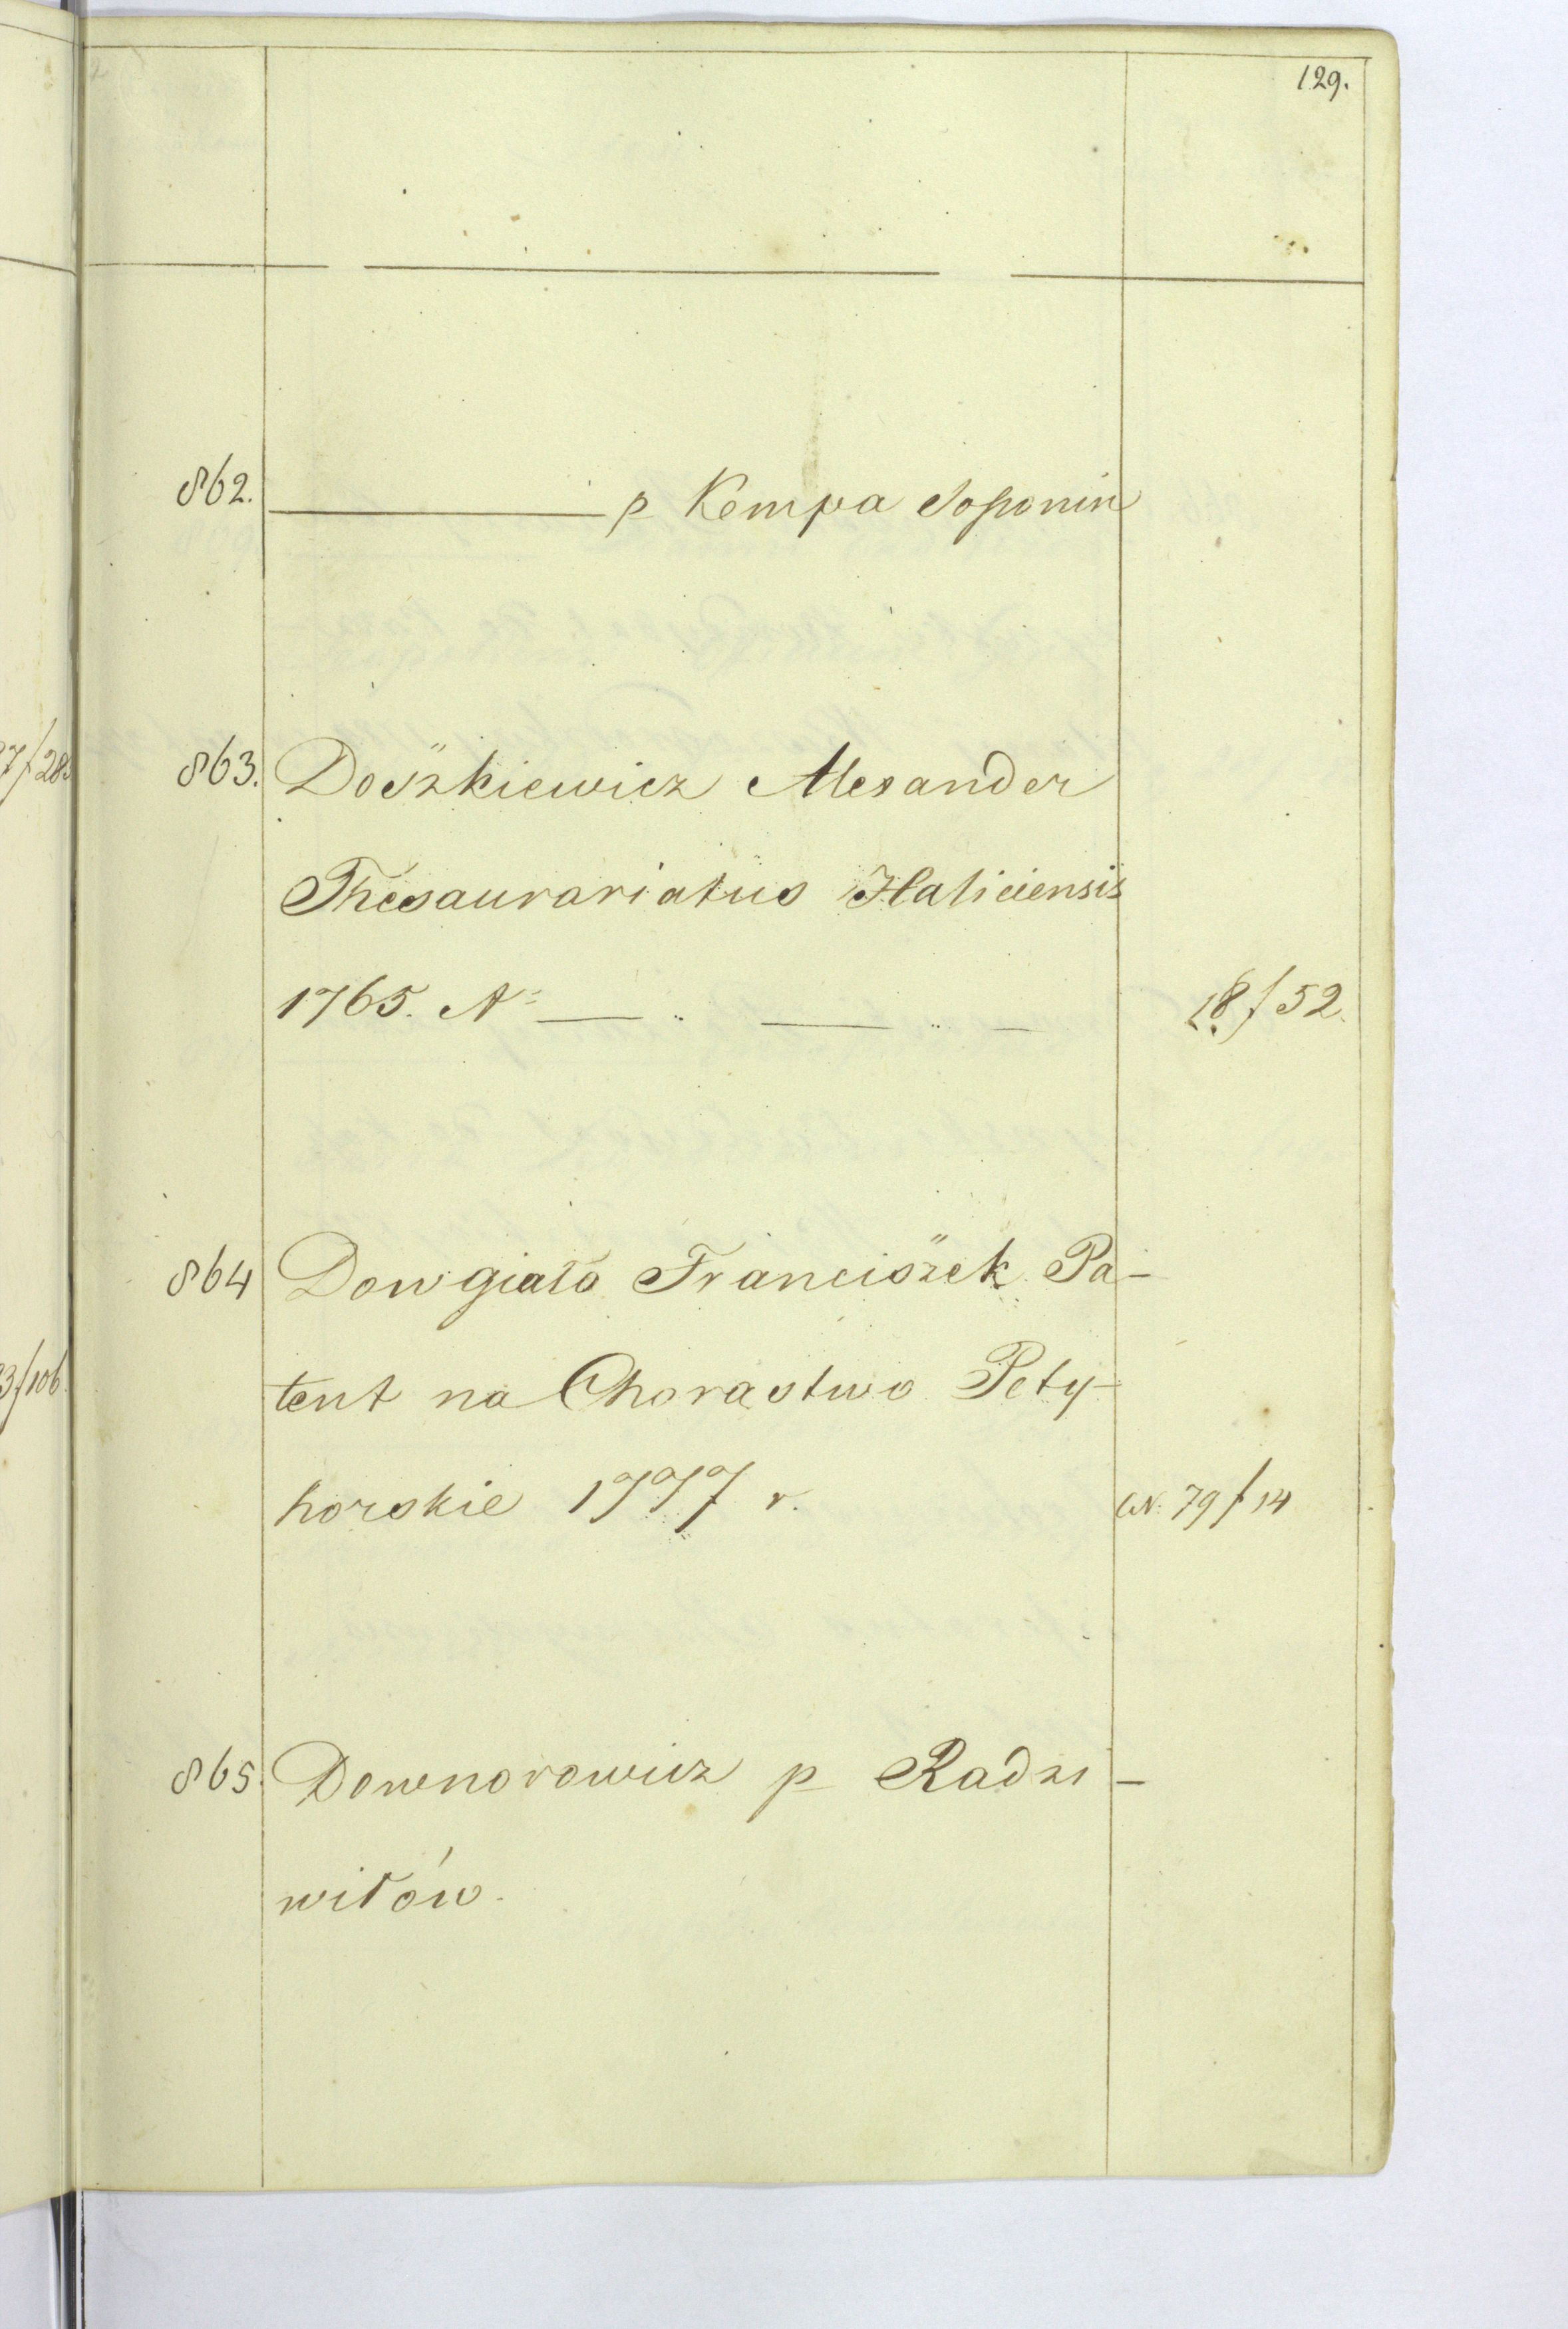 129.
862. ——— p Kempa Soponin
863. Doszkiewicz Alexander
Thesaurariatus Haliciensis
1765. A= — „ — „ — 18 f 52.
864 Dowgiało Franciszek Pa-
tent na Chorąstwo Pety-
horskie 1777 r. W. 79 f 14
865. Downorowicz p Radzi-
wiłów.
3/106